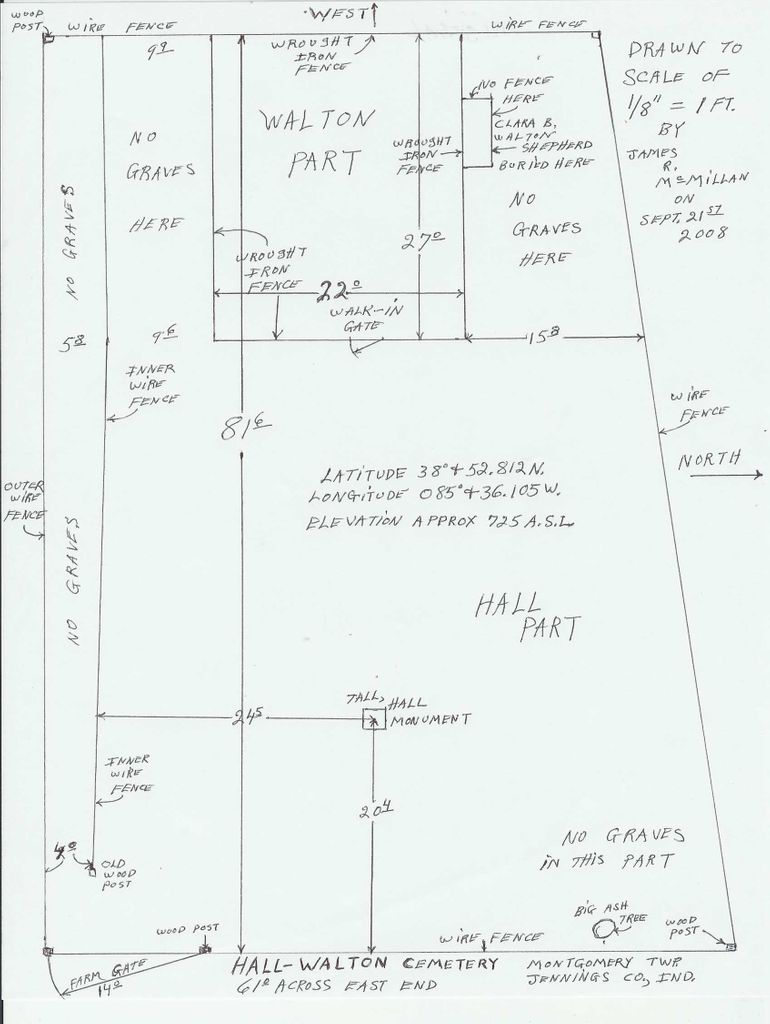 WEST
WOOD
POST
WIRE FENCE
9 9
WROUGHT
IRON
FENCE
WIRE FENCE
DRAWN TO
SCALE OF
1/8" = 1 FT.
BY
JAMES
R.
McMILLAN
ON
SEPT. 21ST
2008
NO
GRAVES
HERE
WALTON
PART
NO FENCE
HERE
CLARA B.
WALTON
SHEPHERD
BURIED HERE
WROUGHT
IRON
FENCE
NO
GRAVES
HERE
NO GRAVES
WROUGHT
IRON
FENCE
27 0
22 0
WALK-IN
GATE
5 8
9 6
15 8
INNER
WIRE
FENCE
81 6
WIRE
FENCE
NORTH
LATITUDE 38° + 52.812 N.
LONGITUDE 085° + 36.105 W.
ELEVATION APPROX 725 A.S.L
OUTER
WIRE
FENCE
NO GRAVES
HALL
PART
TALL, HALL
MONUMENT
24 5
INNER
WIRE
FENCE
20 4
NO GRAVES
IN THIS PART
4 0
OLD
WOOD
POST
BIG ASH
TREE
WOOD
POST
WOOD POST
WIRE FENCE
FARM GATE
14 0
HALL-WALTON CEMETERY
61 0 ACROSS EAST END
MONTGOMERY TWP.
JENNINGS CO., IND.